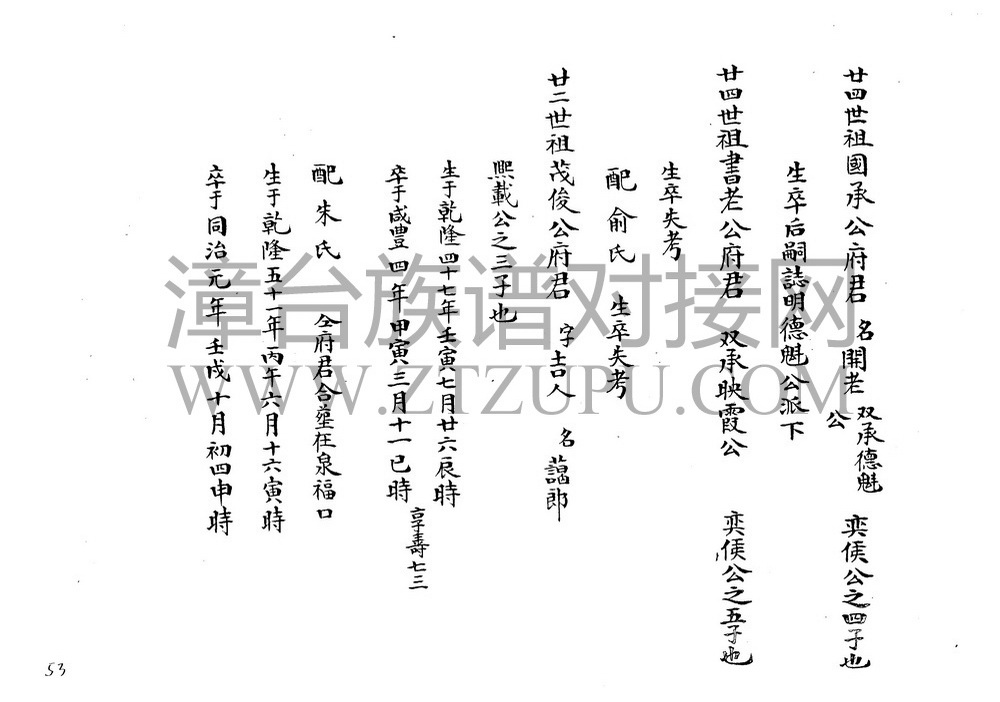 廿四世祖國承公府君 名開老 双承德魁公 奕侯公之四子也
生卒后嗣誌明德魁公派下
廿四世祖書老公府君 双承映霞公 奕侯公之五子也
生卒失考
配俞氏 生卒失考
廿二世祖茂俊公府君 字吉人 名藹郎
熙載公之三子也
生于乾隆四十七年壬寅七月廿六辰時
卒于咸豐四年甲寅三月十一巳時 享壽七三
配朱氏 仝府君合葬在泉福口
生于乾隆五十一年丙午六月十六寅時
卒于同治元年壬戌十月初四申時
漳台族谱对接网
WWW.ZTZUPU.COM
53